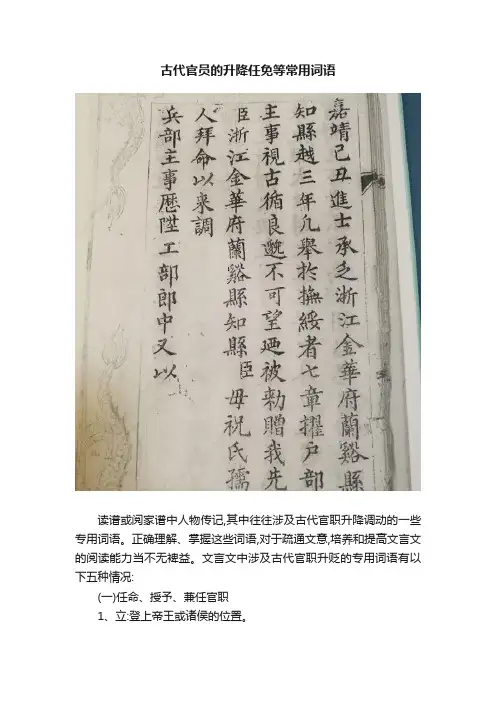 古代官员的升降任免等常用词语
嘉靖己丑進士承乏浙江金華府蘭谿縣
知縣越三年凡舉於撫綏者七章擢戶部
主事視古循良邈不可望廼被勅贈我先
臣浙江金華府蘭谿縣知縣臣毋祝氏孺
人拜命以來調
兵部主事歷陞工部郎中又以
读谱或阅家谱中人物传记,其中往往涉及古代官职升降调动的一些
专用词语。正确理解、掌握这些词语,对于疏通文意,培养和提高文言文
的阅读能力当不无裨益。文言文中涉及古代官职升贬的专用词语有以
下五种情况:
(一)任命、授予、兼任官职
1、立:登上帝王或诸侯的位置。